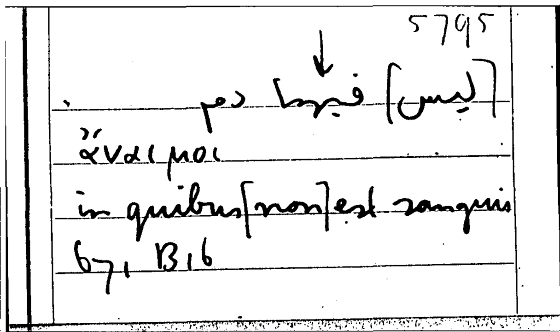 5795
[ليس] فيها دم
ἄναιμοι
in quibus [non] est sanguis
67, B, 6